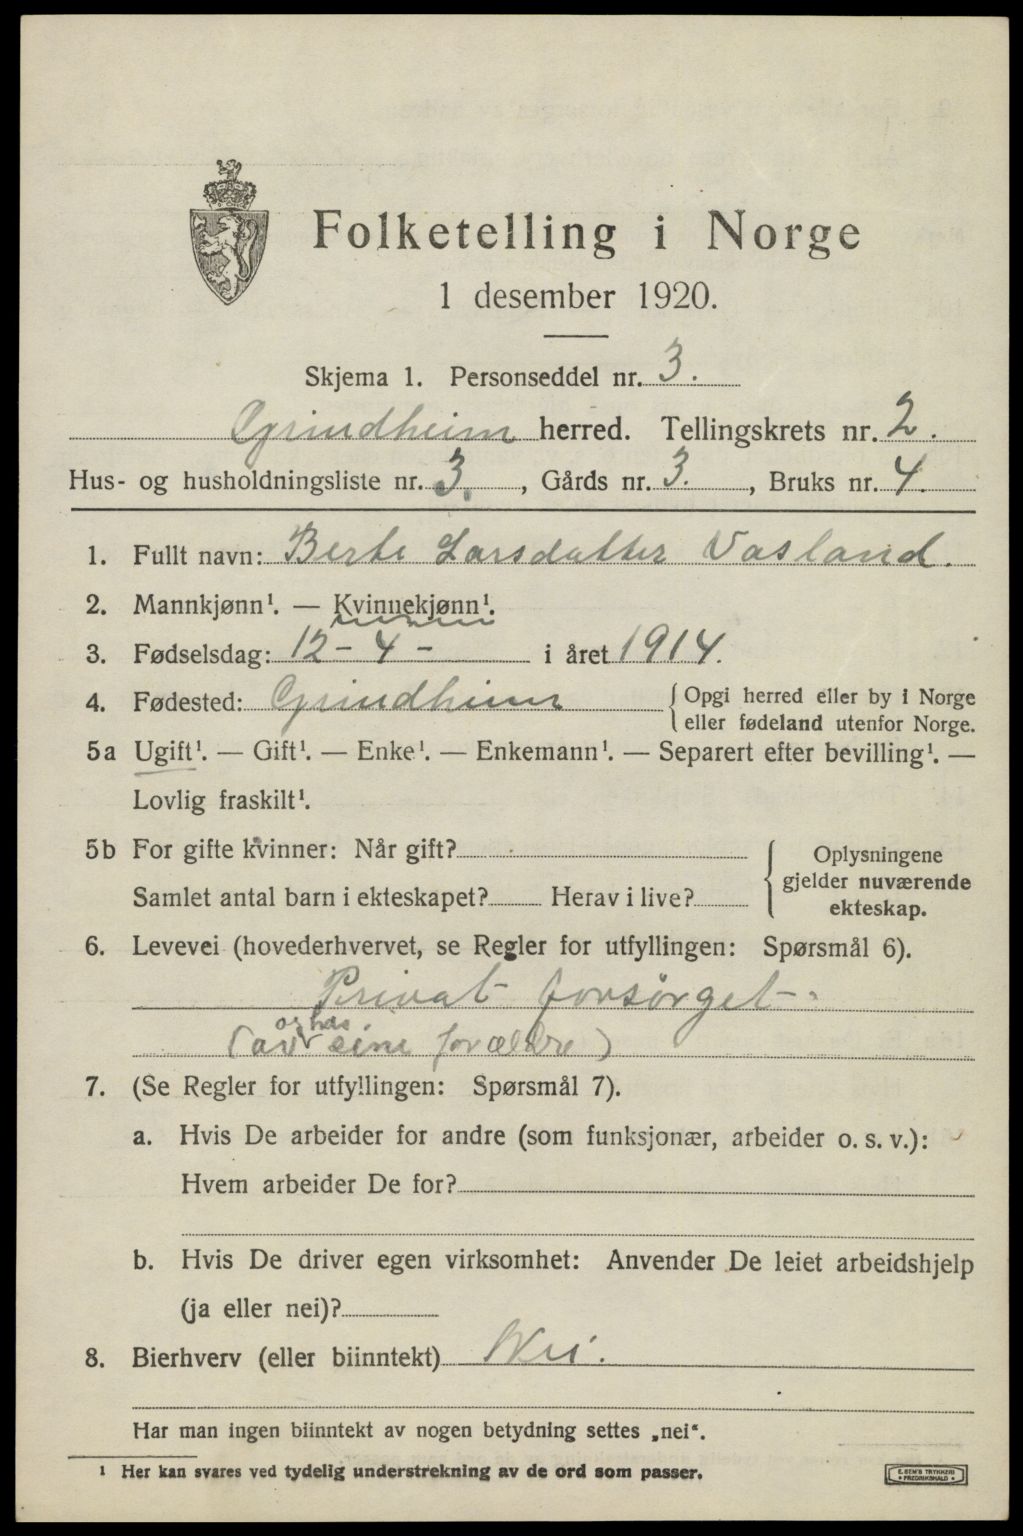 Folketelling i Norge
1 desember 1920.
Skjema 1. Personseddel nr. 3.
Grindheim herred. Tellingskrets nr. 2.
Hus- og husholdningsliste nr. 3., Gårds nr. 3., Bruks nr. 4.
1. Fullt navn: Berte Larsdatter Vasland.
2. Mannkjønn¹. — Kvinnekjønn¹.
3. Fødselsdag: 12 - 4 - i året 1914.
4. Fødested: Grindheim { Opgi herred eller by i Norge
eller fødeland utenfor Norge.
5a Ugift¹. — Gift¹. — Enke¹. — Enkemann¹. — Separert efter bevilling¹. —
Lovlig fraskilt¹.
5b For gifte kvinner: Når gift?
Samlet antal barn i ekteskapet? Herav i live?
{ Oplysningene
gjelder nuværende
ekteskap.
6. Levevei (hovederhvervet, se Regler for utfyllingen: Spørsmål 6).
Privat forsørget
og hos
(av sine forældre)
7. (Se Regler for utfyllingen: Spørsmål 7).
a. Hvis De arbeider for andre (som funksjonær, arbeider o. s. v.):
Hvem arbeider De for?
b. Hvis De driver egen virksomhet: Anvender De leiet arbeidshjelp
(ja eller nei)?
8. Bierhverv (eller biinntekt) Nei.
Har man ingen biinntekt av nogen betydning settes „nei“.
¹ Her kan svares ved tydelig understrekning av de ord som passer.
E. SEM'S TRYKKERI
FREDRIKSHALD